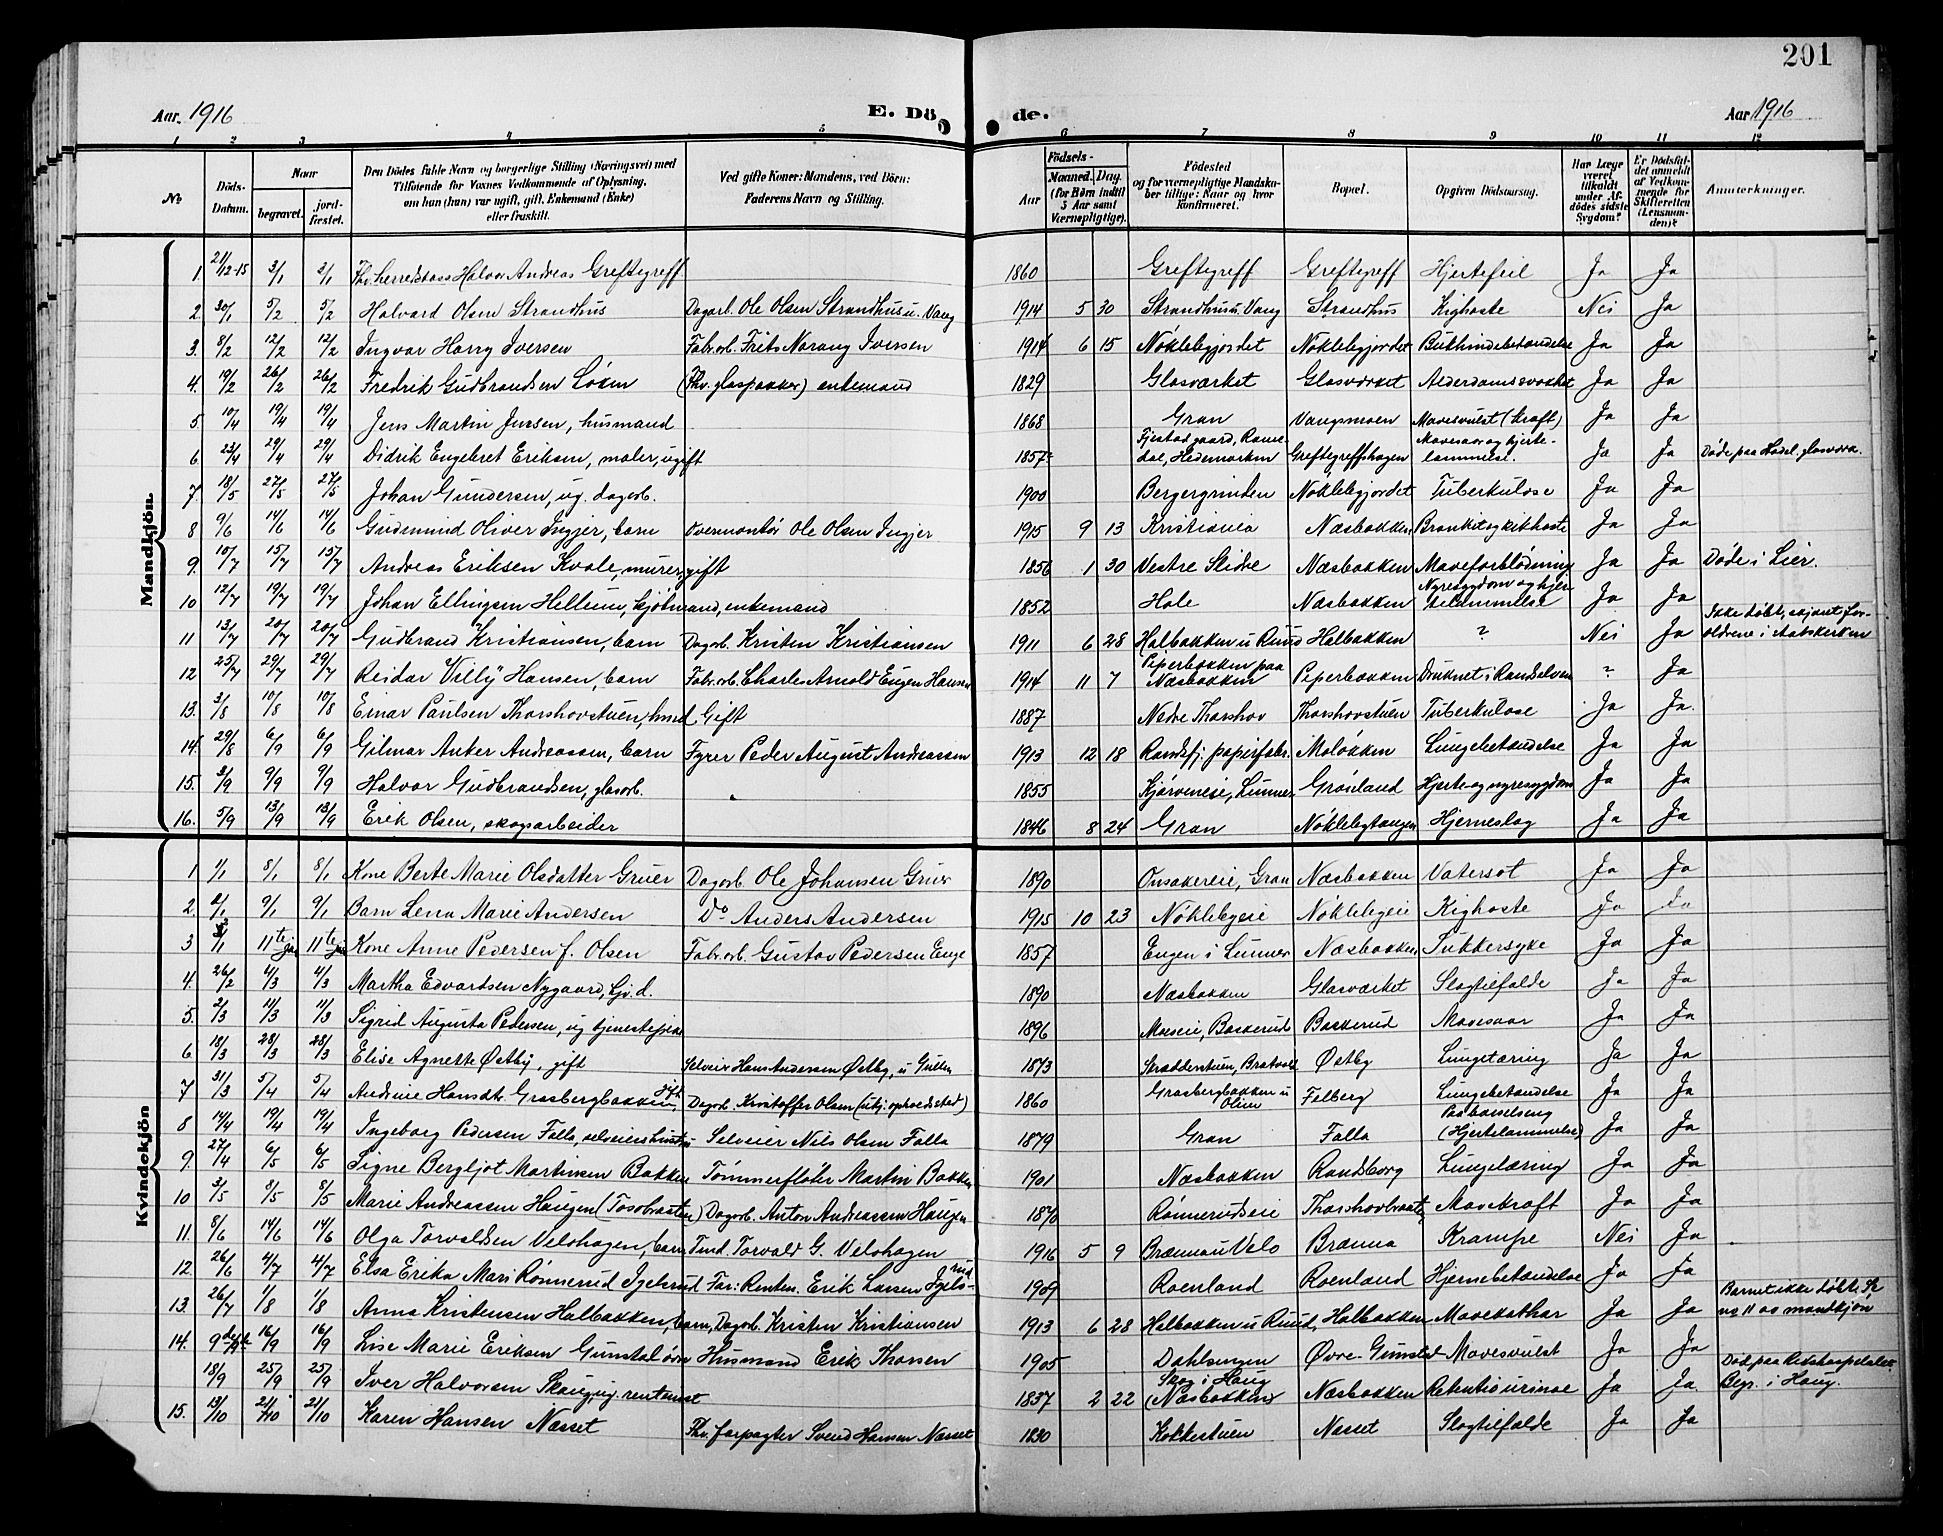 201
Aar 1916 E. Dö de. Aar 1916
1 2 3 4 5 6 7 8 9 10 11 12
No Döds-Datum. Naar begravet. jord-fæstet. Den Dödes fulde Navn og borgerlige Stilling (Næringsvei) med Tilföiende for Voxnes Vedkommende af Oplysning, om han (hun) var ugift, gift, Enkemand (Enke) eller fraskilt. Ved gifte Koner: Mandens, ved Börn: Faderens Navn og Stilling. Födsels- Aar Maaned. Dag. (for Börn indtil 5 Aar samt Værnepligtige). Födested og for værnepligtige Mandska-ber tillige: Naar og hvor konfirmeret. Bopæl. Opgiven Dödsaarsag. Har Læge været tilkaldt under Af-dödes sidste Sygdom? Er Dödsfal-det anmeldt af Vedkom-mende for Skifteretten (Lensman-den)? Anmærkninger.
Mandkjön.
1. 21/12-15 3/1 2/1 Fhv. herredskass Halvor Andreas Greftegreff 1860 Greftegreff Greftegreff Hjertefeil Ja Ja
2. 30/1 5/2 5/2 Halvard Olsen Strandhus Dagarb. Ole Olsen Strandhus u. Vang 1914 5 30 Strandhus u Vang Strandhus Kighoste Nei Ja
3. 8/2 12/2 12/2 Ingvar Harry Iversen Fabr.arb. Frits Narang Iversen 1914 6 15 Nøklebyjordet Nøklebyjordet Bukhindebetændelse Ja Ja
4. 19/2 26/2 26/2 Fredrik Gudbrandsen Løken (Fhv. glaspakker) enkemand 1829 Glasværket Glasværket Alderdomssvakhet Ja Ja
5. 10/4 19/4 19/4 Jens Martin Jensen, husmand 1868 Gran Vangsmoen Mavesvulst (Kraft) Ja Ja
6. 23/4 29/4 29/4 Didrik Engebret Eriksen, maler, ugift 1857 Fjestad gaard, Romedal, Hedemarken Greftegreffhagen Mavesaar og hjertelammelse. Ja Ja Døde paa Hadel. glasværk.
7. 18/5 27/5 27/5 Johan Gundersen, ug. dagarb. 1900 Bergergrinden Nøklebyjordet Tuberkulose Ja Ja
8 9/6 14/6 14/6 Gudmund Oliver Ingjer, barn Overmontør Ole Olsen Ingjer 1915 9 13 Kristiania Næsbakken Bronkit og kikhoste Ja Ja
9. 10/7 15/7 15/7 Andreas Eriksen Kvale, murer, gift 1856 1 30 Vestre Slidre Næsbakken Maveforblødning Ja Ja Døde i Lier.
10 12/7 19/7 19/7 Johan Ellingsen Hellum, kjøbmand, enkemand 1852 Hole Næsbakken Nyresygdom og hjertelammelse Ja Ja
11 13/7 20/7 20/7 Gudbrand Kristiansen, barn Dagarb. Kristen Kristiansen 1911 6 28 Halbakken u Ruud Halbakken ? Nei Ja Ikke døbt,
12 25/7 29/7 29/7 Reidar Villy Hansen, barn Fabr.arb. Charles Arnold Eugen Hansen 1914 11 7 Peperbakken paa Næsbakken Peperbakken Druknet i Randselven ? Ja
13. 3/8 10/8 10/8 Einar Paulsen Thorshovstuen, hmd Gift 1887 Nedre Thorshov Thorshovstuen Tuberkulose Ja Ja.
14. 29/8 6/9 6/9 Gilmar Anker Andreassen, barn Fyrer Peder August Andreassen 1913 12 18 Randsfj. papirfabr. Moløkken Lungebetændelse Ja Ja
15. 3/9 9/9 9/9 Halvor Gudbrandsen, glasarb. 1855 Kjørveneie, Lunner Grønland Hjerte- og nyresygdom Ja Ja
16. 5/9 13/9 13/9 Erik Olsen, skogsarbeider 1846 8 24 Gran Nøklebytangen Hjerneslag Ja Ja
Kvindekjön.
1 1/1 8/1 8/1 Kone Berte Marie Olsdatter Gruer Dagarb. Ole Johansen Gruer 1890 Onsakereie, Gran Næsbakken Vatersot Ja Ja
2. 2/1 9/1 9/1 Barn Lena Marie Andersen Do Anders Andersen 1915 10 23 Nøklebyeie Nøklebyeie Kighoste Ja Ja
3 3/1 11te jan 11te jan Kone Anne Pedersen f. Olsen Fabr.arb. Gustav Pedersen Enge 1857 Engen i Lunner Næsbakken Sukkersyke Ja Ja
4. 26/2 4/3 4/3 Martha Edvardsen Nygaard, tjv. d. 1890 Næsbakken Glasværket Slagtilfælde Ja Ja
5. 2/3 11/3 11/3 Sigrid Augusta Pedersen, ug tjenestepike 1896 Moeseie, Bakkerud Bakkerud Mavesaar Ja Ja
6 18/3 28/3 28/3 Elise Agnette Østby, gift Selveier Hans Andersen Østby, u Gullen 1873 Skrædderstuen, Bratvold Østby Lungetæring Ja Ja
7 31/3 5/4 5/4 Andrine Hansdt. Grasbergbakken, gift Dagarb. Kristoffer Olsen 1860 Grasbergbakken u Olien Felberg Lungebetændelse Ja Ja
8 14/4 19/4 19/4 Ingeborg Pedersen Falla, selveiers hustru Selveier Nils Olsen Falla 1879 Gran Falla Paa barselseng (Hjertelammelse) Ja Ja
9. 27/4 6/5 6/5 Signe Bergljot Martinsen Bakken Tømmerfløter Martin Bakken 1901 Næsbakken Randsborg Lungetæring Ja Ja
10 3/5 8/5 8/5 Marie Andreassen Haugen (Tosobraaten) Dagarb. Anton Andreassen Haugen 1870 Rønnerudseie Thorshovbraaten Mavekraft Ja Ja
11. 8/6 14/6 14/6 Olga Torvaldsen Velohagen, barn Tind. Torvald G. Velohagen 1916 5 9 Brænna u Velo Brænna Krampe Nei Ja
12 26/6 4/7 4/7 Elsa Erika Mari Rønnerud Igelsrud Far: Renten. Erik Larsen Igelsrud 1909 Roenland Roenland Hjernebetændelse Ja Ja
13. 26/7 1/8 1/8 Anna Kristensen Halbakken, barn, Dagarb. Kristen Kristiansen 1913 6 28 Halbakken u Ruud, Halbakken Mavekathar Ja Ja Barnet ikke døbt. Se no 11 av mandkjøn
14. 16/9 16/9 Lise Marie Eriksen Gunstad øvre Husmand Erik Thorsen 1905 Dahlsengen Øvre-Gunstad Mavesvulst Ja Ja
18/9 25/9 25/9 Iver Halvorsen Skaug, ug. rentenist 1837 2 22 Skog i Haug (Næsbakken) Næsbakken Retentio urinae Ja Ja Død paa Rikshospitalet Begr. i Haug.
15. 13/10 21/10 21/10 Karen Hansen Næsset Fhv. forpagter Svend Hansen Næsset 1830 Kokkestuen Næsset Slagtilfælde Ja Ja